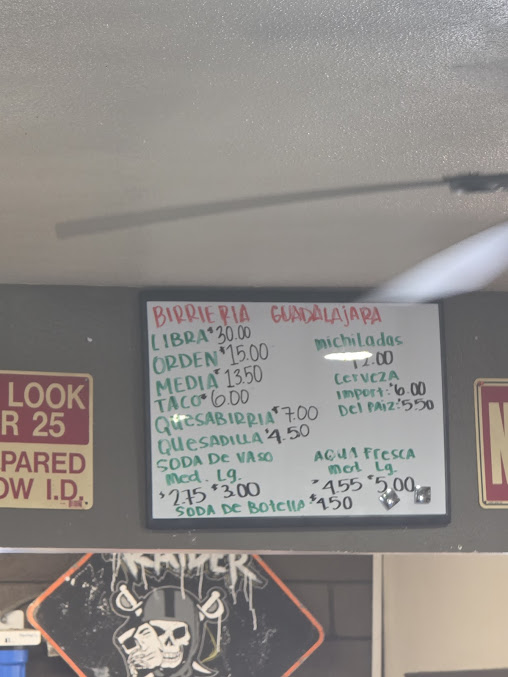 BIRRIERIA GUADALAJARA
LIBRA $30.00
ORDEN $15.00
MEDIA $13.50
TACO $6.00
QUESABIRRIA $7.00
QUESADILLA $4.50
SODA DE VASO
Med. Lg.
$2.75 $3.00
SODA DE Botella $4.50
michiladas
12.00
Cerveza
Import: $6.00
Del Paiz: $5.50
AGUA Fresca
Med. Lg.
$4.55 $5.00
LOOK
R 25
PARED
OW I.D.
N
RAIDER